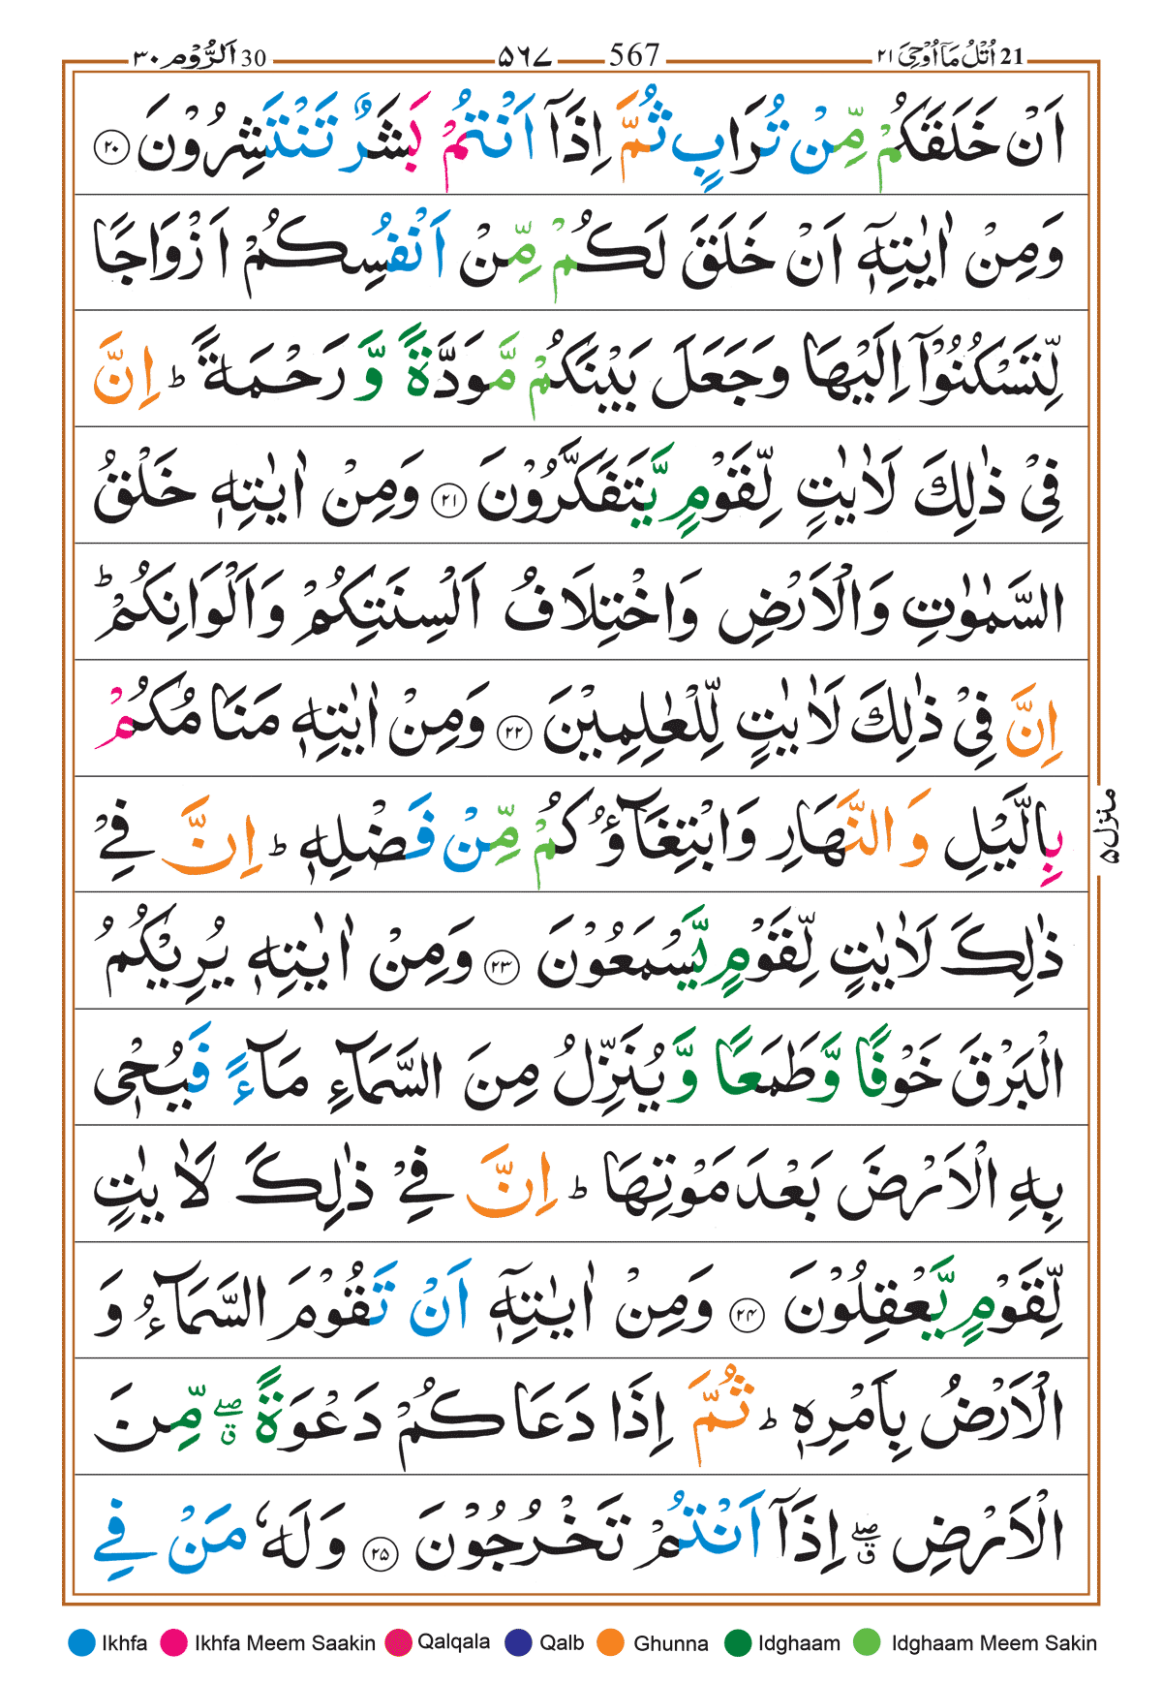 21 اُتْلُ مَآ اُوْحِیَ ٢١ 567 ٥٦٧ 30 اَلرُّوْم ٣٠
اَنْ خَلَقَكُمْ مِّنْ تُرَابٍ ثُمَّ اِذَآ اَنْتُمْ بَشَرٌ تَنْتَشِرُوْنَ ٢٠
وَمِنْ اٰيٰتِهٖٓ اَنْ خَلَقَ لَكُمْ مِّنْ اَنْفُسِكُمْ اَزْوَاجًا
لِّتَسْكُنُوْٓا اِلَيْهَا وَجَعَلَ بَيْنَكُمْ مَّوَدَّةً وَّ رَحْمَةً ؕ اِنَّ
فِيْ ذٰلِكَ لَاٰيٰتٍ لِّقَوْمٍ يَّتَفَكَّرُوْنَ ٢١ وَمِنْ اٰيٰتِهٖ خَلْقُ
السَّمٰوٰتِ وَالْاَرْضِ وَاخْتِلَافُ اَلْسِنَتِكُمْ وَاَلْوَانِكُمْ ؕ
اِنَّ فِيْ ذٰلِكَ لَاٰيٰتٍ لِّلْعٰلِمِيْنَ ٢٢ وَمِنْ اٰيٰتِهٖ مَنَامُكُمْ
بِالَّيْلِ وَ النَّهَارِ وَابْتِغَآؤُكُمْ مِّنْ فَضْلِهٖ ؕ اِنَّ فِيْ
ذٰلِكَ لَاٰيٰتٍ لِّقَوْمٍ يَّسْمَعُوْنَ ٢٣ وَمِنْ اٰيٰتِهٖ يُرِيْكُمُ
الْبَرْقَ خَوْفًا وَّطَمَعًا وَّيُنَزِّلُ مِنَ السَّمَآءِ مَآءً فَيُحْيٖ
بِهِ الْاَرْضَ بَعْدَ مَوْتِهَا ؕ اِنَّ فِيْ ذٰلِكَ لَاٰيٰتٍ
لِّقَوْمٍ يَّعْقِلُوْنَ ٢٤ وَمِنْ اٰيٰتِهٖٓ اَنْ تَقُوْمَ السَّمَآءُ وَ
الْاَرْضُ بِاَمْرِهٖ ؕ ثُمَّ اِذَا دَعَاكُمْ دَعْوَةً ۖق مِّنَ
الْاَرْضِ ۖق اِذَآ اَنْتُمْ تَخْرُجُوْنَ ٢٥ وَلَهٗ مَنْ فِي
منزل ٥
Ikhfa Ikhfa Meem Saakin Qalqala Qalb Ghunna Idghaam Idghaam Meem Sakin